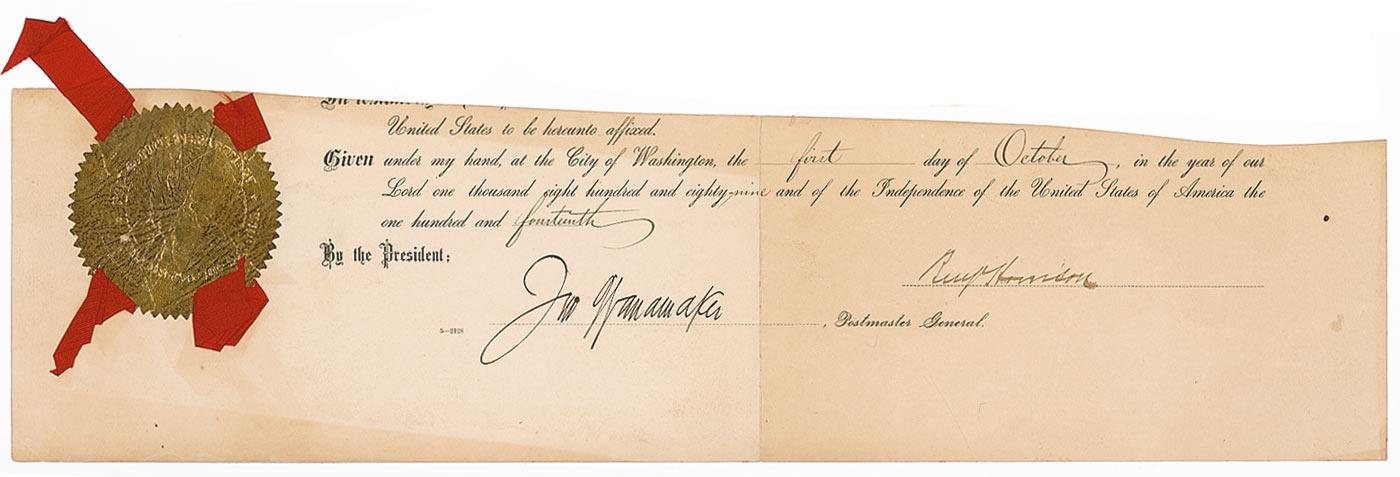 United States to be hereunto affixed.
Given under my hand, at the City of Washington, the first day of October, in the year of our
Lord one thousand eight hundred and eighty-nine and of the Independence of the United States of America the
one hundred and fourteenth
By the President:
Benj Harrison
Jno Wanamaker
5—2128
, Postmaster General.